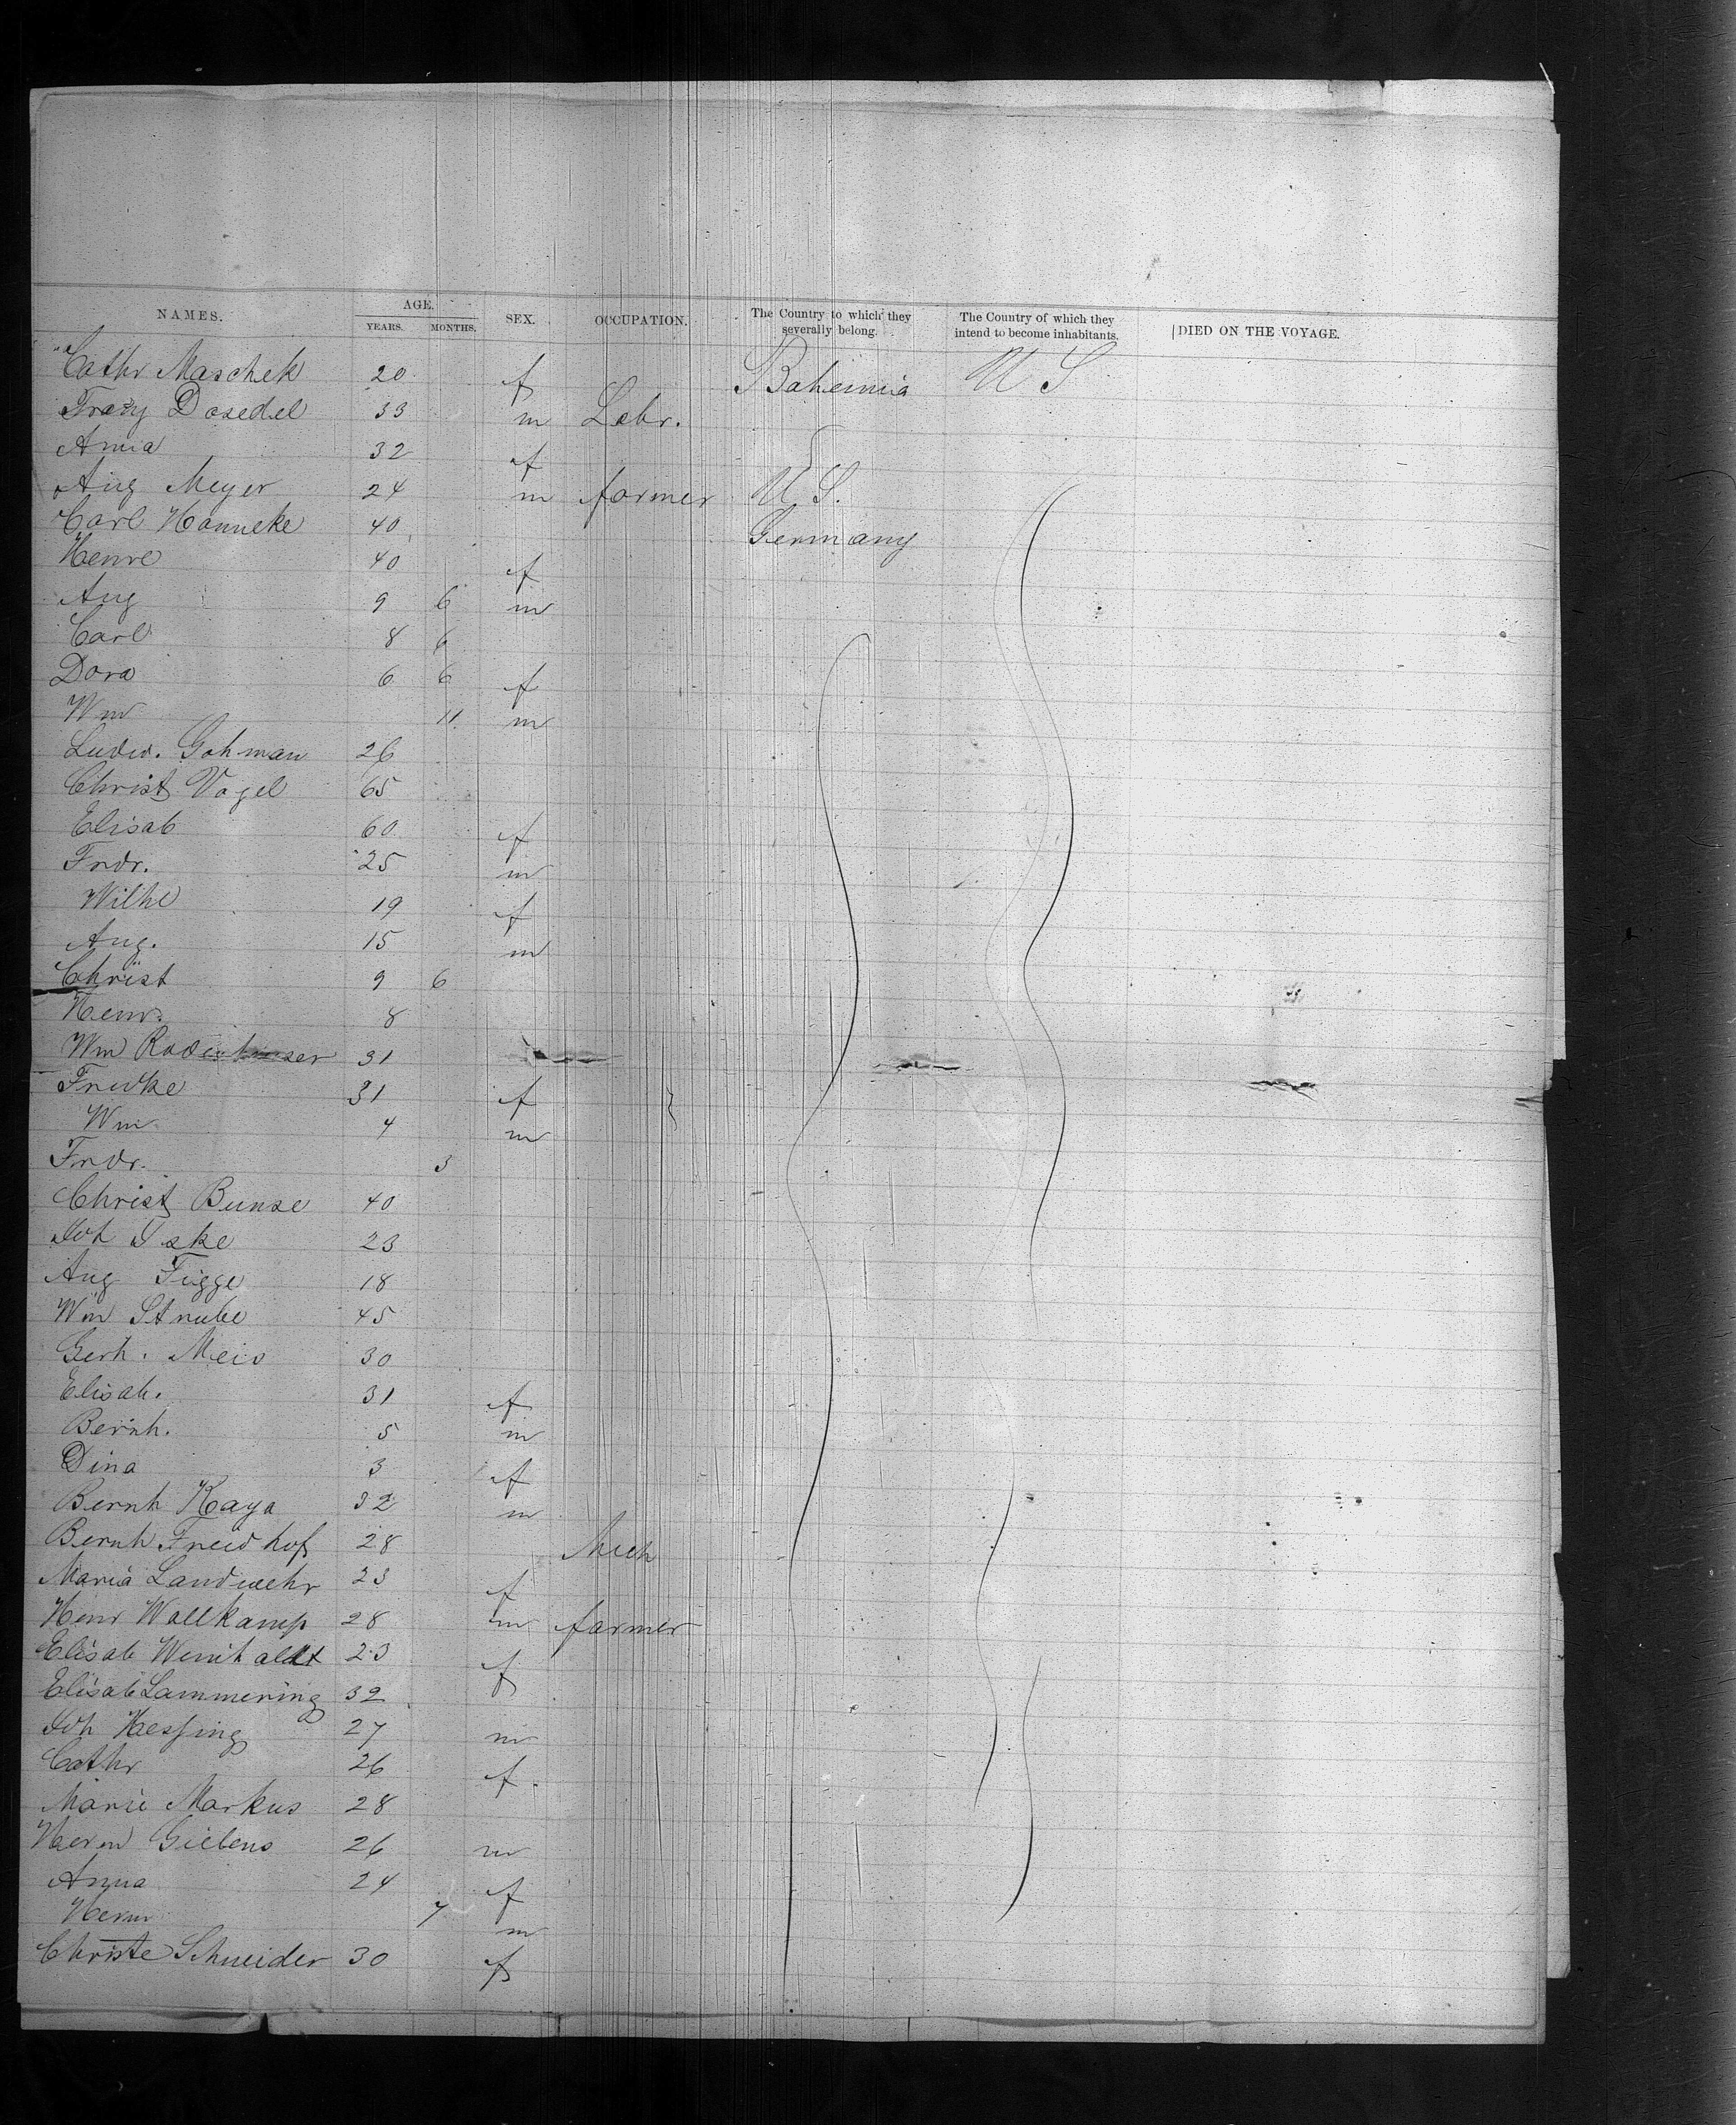 NAMES. AGE. YEARS. MONTHS. SEX. OCCUPATION. The Country to which they severally belong. The Country of which they intend to become inhabitants. DIED ON THE VOYAGE.
Cathr Maschek 20 f Bahemia U S
Franz Dosedel 33 m Lobr.
Anna 32 f
Aug Meyer 24 m farmer U. S.
Carl Hanneke 40 Germany
Henre 40 f
Aug 9 6 m
Carl 8 6
Dora 6 6 f
Wm 11 m
Ludw. Gohman 26
Christ Vogel 65
Elisab 60 f
Frdr. 25 m
Wilhe 19 f
Aug. 15 m
Christ 9 6
Henr. 8
Wm 31
Friedke 31 f
Wm 4 m
Frdr. 3
Christ Bunse 40
Joh Iske 23
Aug Figge 18
Wm Strube 45
Gerh. Meis 30
Elisab. 31 f
Bernh. 5 m
Dina 3 f
Bernh Kaya 32 m
Bernh Freidhof 28 Mech
Maria Landwehr 23 f
Henr Wallkamp 28 m farmer
Elisab 23 f
Elisab Lammering 32
Joh Hessing 27 m
Cathr 26 f
Marie Markus 28
Herm Gielens 26 m
Anna 24 f
Herm 7 m
Christe Schneider 30 f